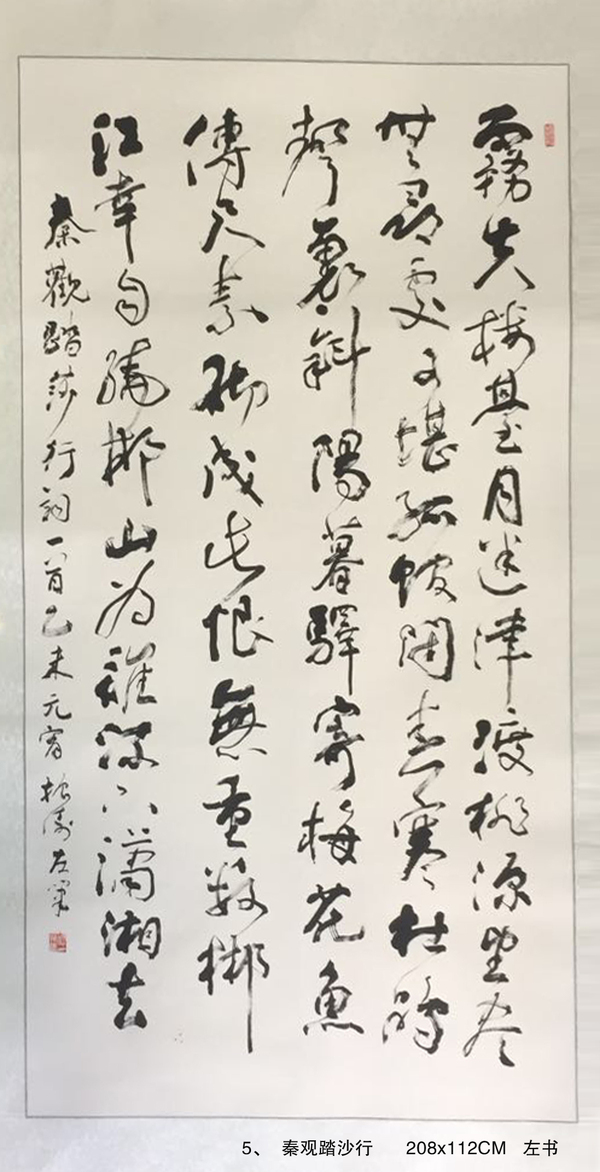 霧失樓臺月迷津渡桃源望尽
無尋處可堪孤館閉春寒杜鵑
聲裏斜陽暮驛寄梅花魚
傳尺素砌成此恨無重數郴
江幸自繞郴山為誰流下瀟湘去
秦觀踏莎行詞一首乙未元宵松濤左筆
5、 秦观踏沙行 208x112CM 左书